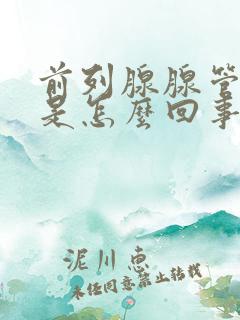 前列腺腺管
是怎麼回事
泥川惠
未经同意禁止转载